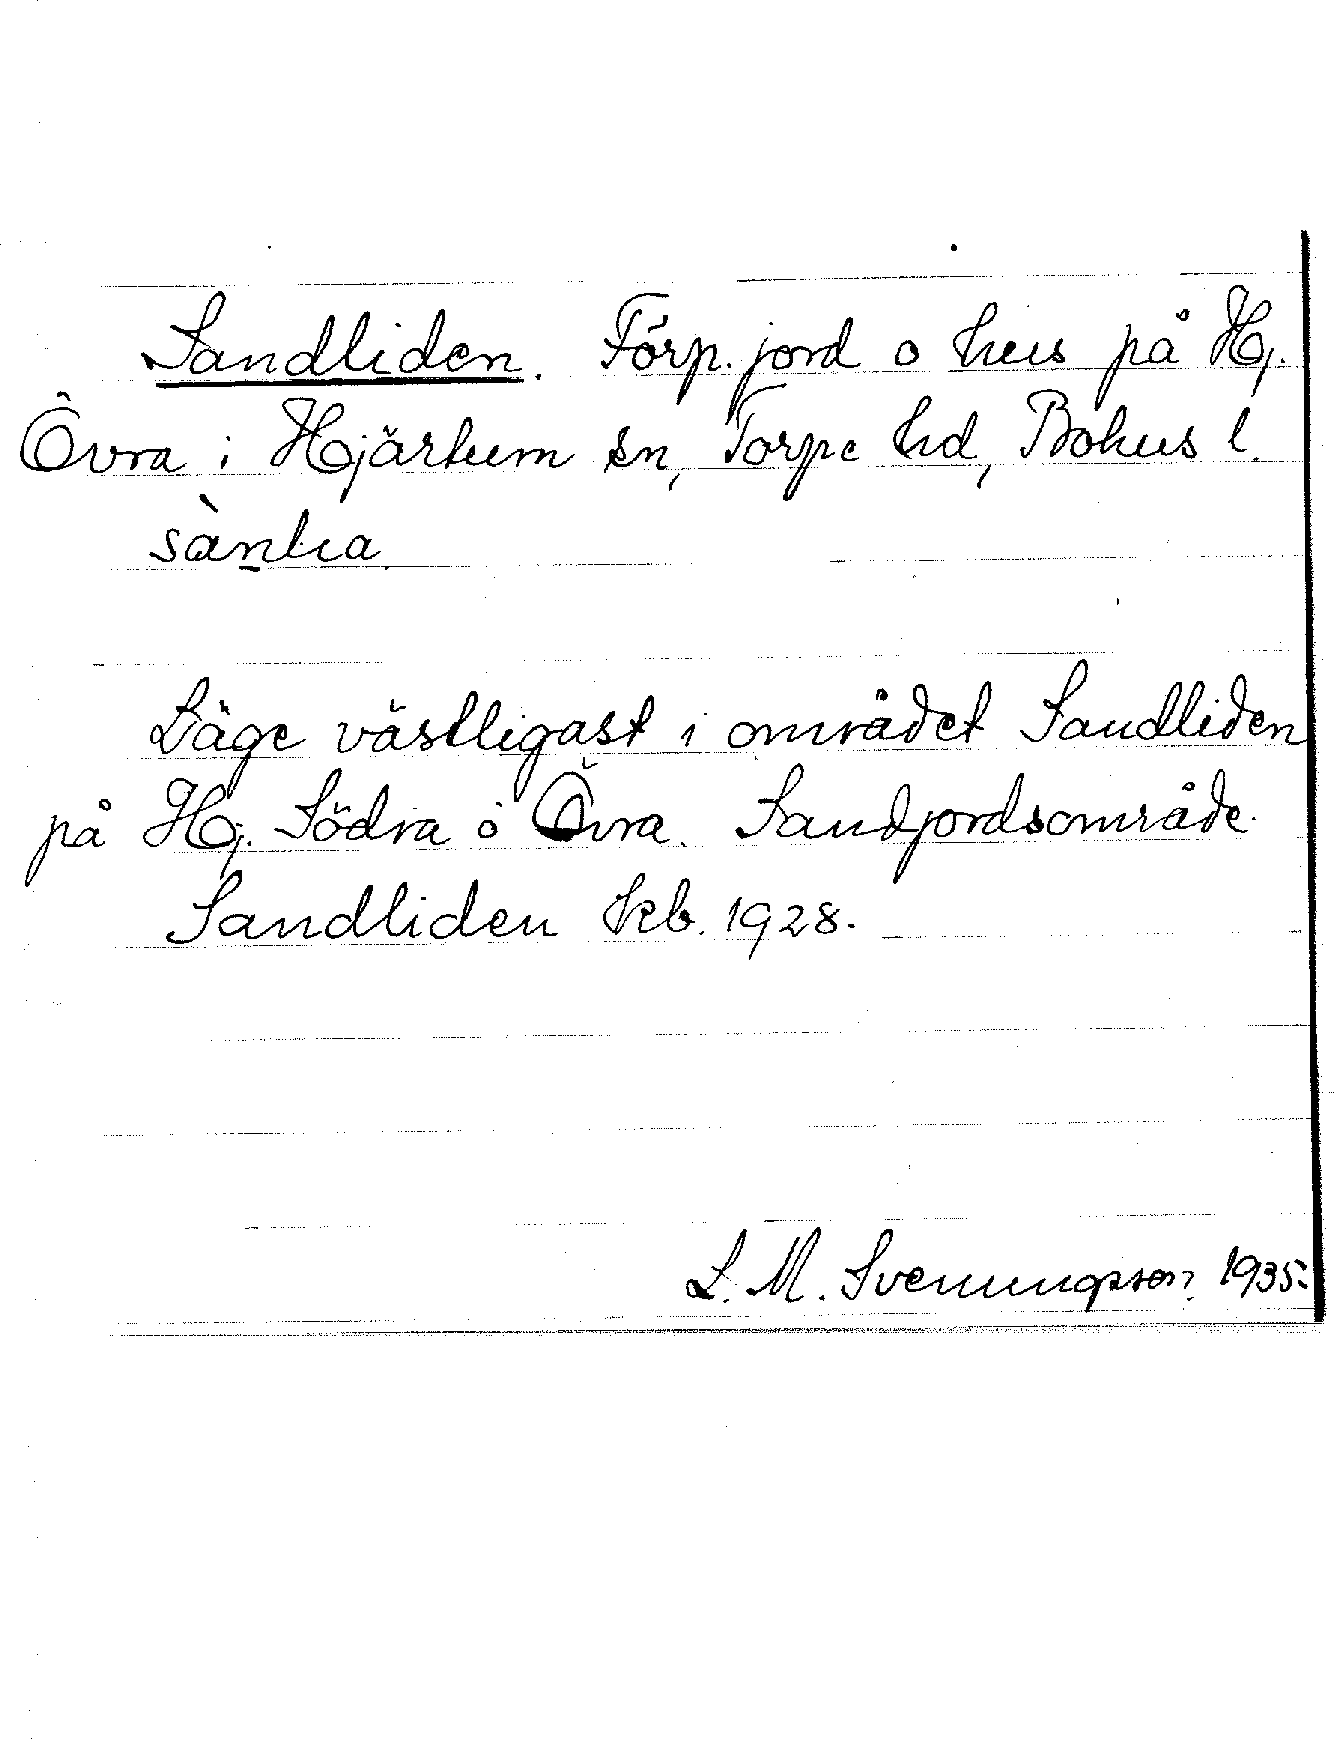 Sandliden. Förp. jord o hus på Hj.
Övra i Hjärtum sn, Torpe hd, Bohus l.
Läge västligast i området Sandliden
på Hj. Södra o Övra. Sandjordsområde.
Sandliden Skb. 1928.
L. M. Svenungsson 1935.